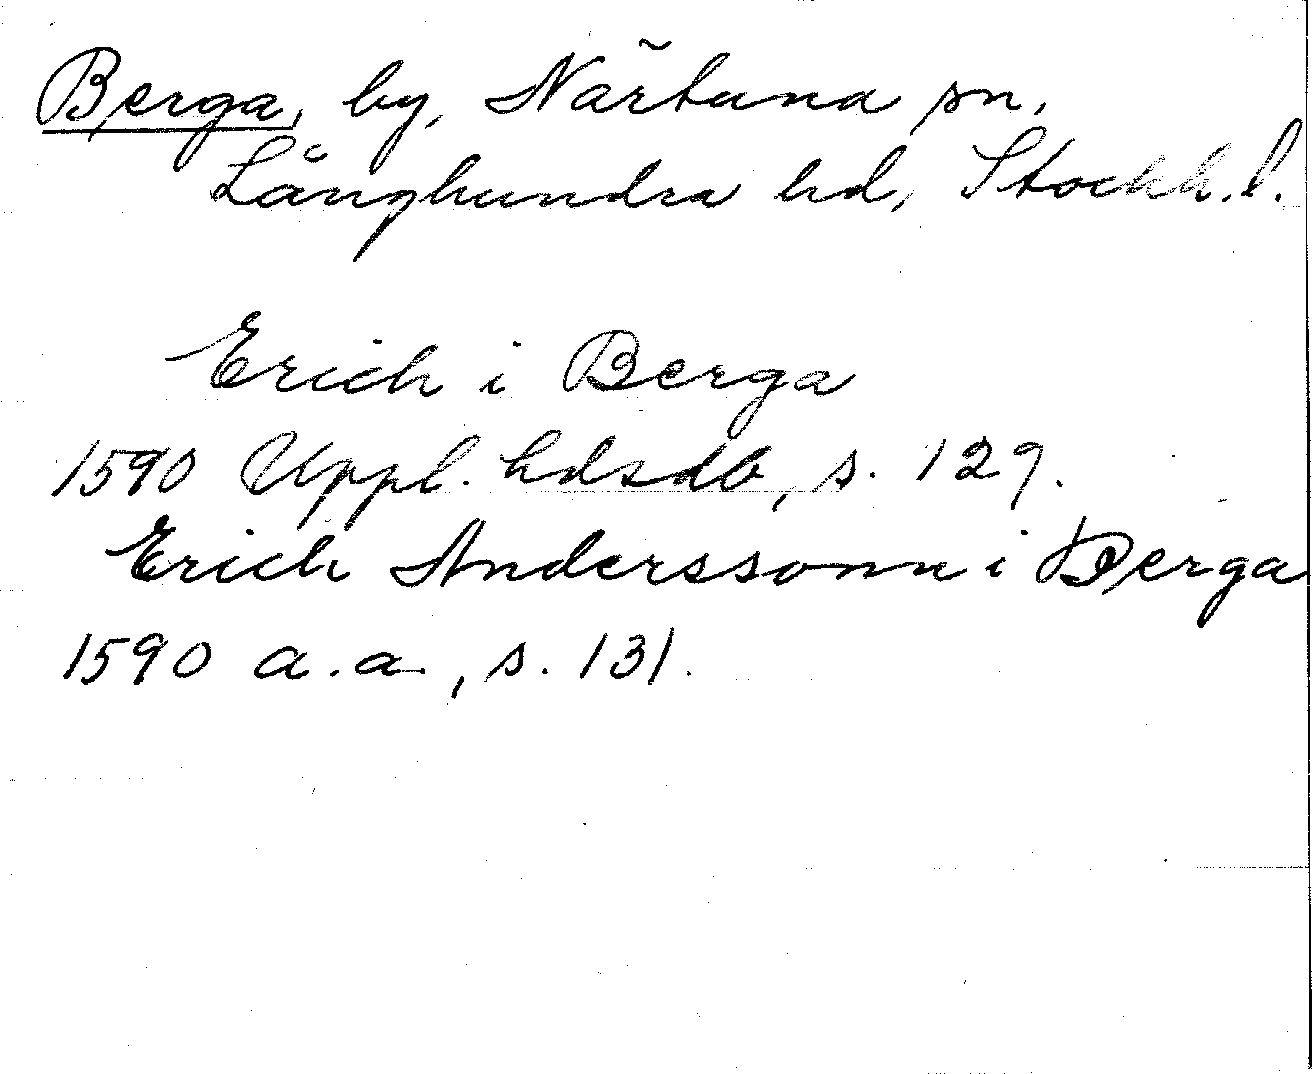 Berga, by, Närtuna sn,
Långhundra hd, Stockh. l.
Erich i Berga
1590 Uppl. hdsdb, s. 129.
Erich Anderssonn i Berga
1590 a.a., s. 131.